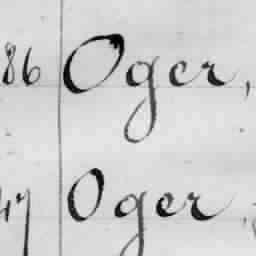 86 Oger,
47 Oger,